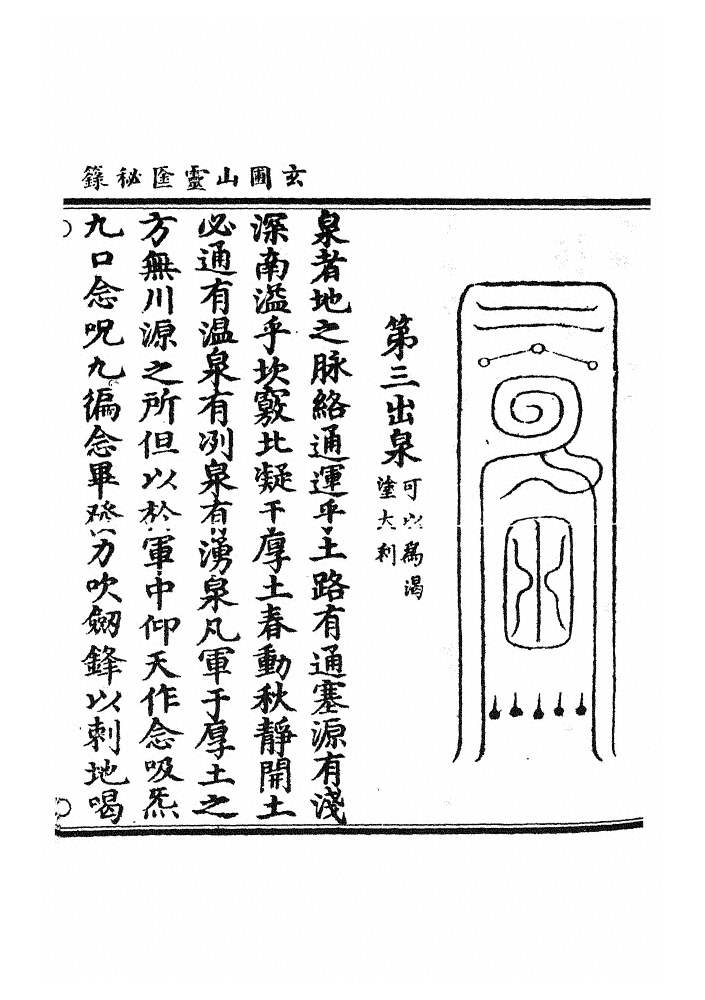 玄圃山靈匧秘籙
第三出泉
可以為渴
塗大利
泉者地之脉絡通運乎土路有通塞源有淺
深南溢乎坎竅北凝于厚土春動秋靜開土
必通有温泉有冽泉有湧泉凡軍于厚土之
方無川源之所但以於軍中仰天作念吸炁
九口念呪九徧念畢發力吹劒鋒以刺地喝